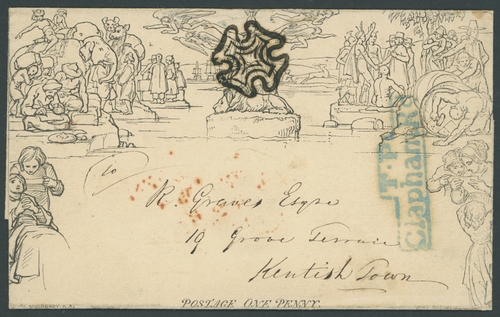 T.P
Clapham R
to
R. Graves Esqre
19 Grove Terrace
Kentish Town
POSTAGE ONE PENNY.